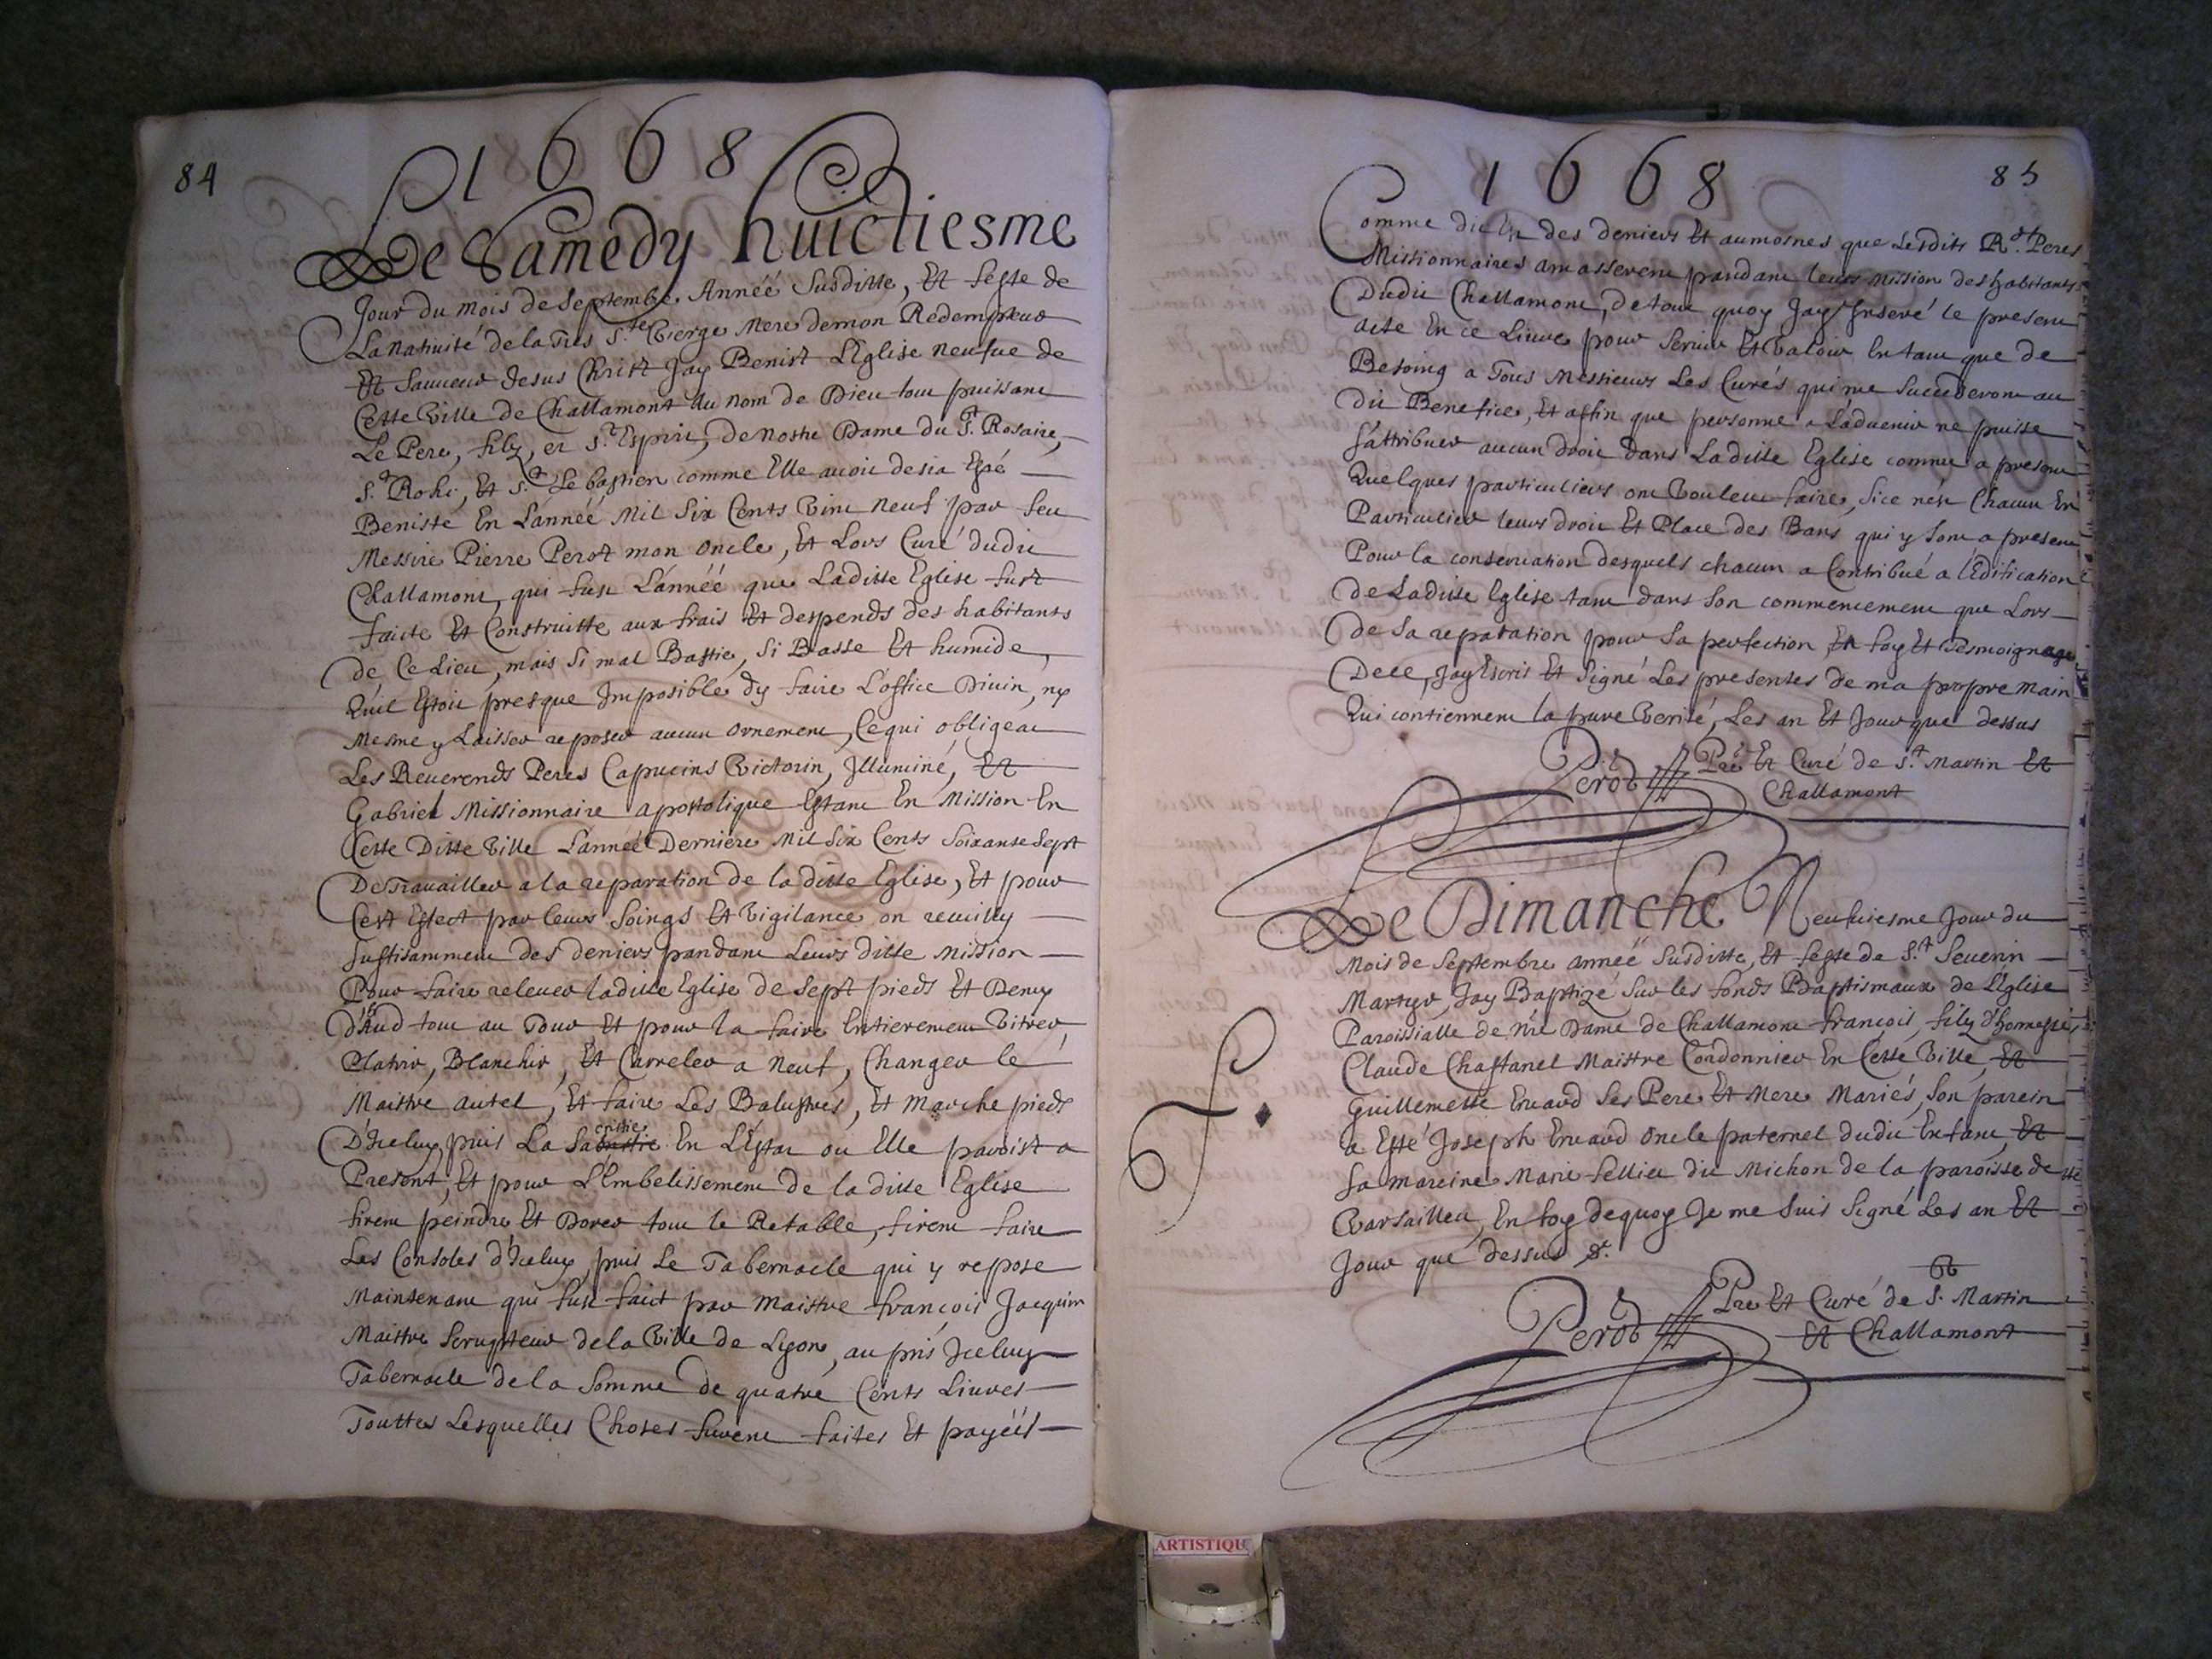 84
1668
Le Samedy huictiesme
Jour du mois de Septembre Année Susditte, Et feste de
La Natiuité de la Tres Ste Vierge Mere de mon Redempteur
Et Sauueur Jesus Christ Jay Benist L'Eglise neufue de
Cette Ville de Challamont Au nom de Dieu tout puissant
Le Pere, filz, et St Esprit, de Nostre Dame du St Rosaire,
St Roht, Et St Sebastien comme Elle auoit desia Esté
Beniste En L'année Mil Six Cents Vint neuf par feu
Messire Pierre Perot mon oncle, Et Lors Curé dudit
Challamont, qui fust L'année que Laditte Eglise fust
faicte Et Construitte aux frais Et despends des habitants
de Ce Lieu, mais Si mal Bastie, Si Basse Et humide,
Quil Estoit presque Imposible dy faire L'office Diuin, ny
Mesme y Laisser reposer aucun ornement, Ce qui obligeat
Les Reuerends Peres Capucins Victorin, Illuminé, Et
Gabriel Missionnaire apostolique Estant En Mission En
Cette Ditte Ville L'année Derniere Mil Six Cents Soixante Sept
De Trauailler a la reparation de la ditte Eglise, Et pour
Cest Effect par leurs Soings Et Vigilance on receuilly
Suffisamment des deniers pandant Leurs ditte Mission
Pour faire releuer laditte Eglise de Sept pieds Et Demy
d'haud tout au Tour Et pour la faire Entierement Vitrer,
Platrir, Blanchir, Et Carreler a Neuf, Changer le
Maistre autel, Et faire Les Balustres, Et Marche pieds
D'Iceluy, puis La Sacristie En L'Estat ou Elle paroist a
Present, Et pour L'Embelissement de la ditte Eglise
firent peindre Et Dorer tout le Retable, firent faire
Les Consoles d'Iceluy, puis Le Tabernacle qui y repose
Maintenant qui fust faict par Maistre françois Jacquin
Maistre Scrupteur de la Ville de Lyon, au pris Iceluy
Tabernacle de la Somme de quatre Cents Liures
Touttes Lesquelles Choses furent faites Et payéés
1668
85
Comme dit Est des deniers Et aumosnes que Lesdits Rds Peres
Missionnaires amasserent pandant leurs mission des habitants
Dudit Challamont, de tout quoy Jay Inseré le present
acte En ce Liure pour Seruir Et Valoir En tant que de
Besoing a Tous Messieurs Les Curés qui me Succederont au
dit Benefice, Et affin que personne a Laduenir ne puisse
S'attribuer aucun droit Dans Laditte Eglise comme a present
Quelques particuliers ont Vouleu faire, Si ce n'est Chacun En
Particulier leurs droit Et Place des Bans qui y Sont a present
Pour la conseruation desquels chacun a Contribué a l'Edification
de Laditte Eglise tant dans Son commencement que Lors
de Sa reparation pour Sa perfection En foy Et Tesmoignage
Dece, Jay Escris Et Signé Les presentes de ma propre main
Qui contiennent la pure Verité, Les an Et Jour que dessus
Perot Pre Et Curé de St Martin Et
Challamont
Le Dimanche Neufuiesme Jour du
Mois de Septembre année Susditte, Et feste de St Seuerin
Martyr, Jay Baptizé Sur les fonds Baptismaux de L'Eglise
Paroissialle de nre Dame de Challamont françois, filz d'honneste
Claude Chastanel Maistre Cordonnier En Cette Ville, Et
Guillemette Eruard Ses Pere Et Mere Mariés, Son parein
a Esté Joseph Eruard oncle paternel dudit Enfant, Et
Sa mareine Marie Sellier dit Michon de la paroisse de
Varsailleu, En foy dequoy Je me Suis Signé Les an Et
Jour que dessus &.
Perot Pre Et Curé de S. Martin
Et Challamont
ARTISTIQU